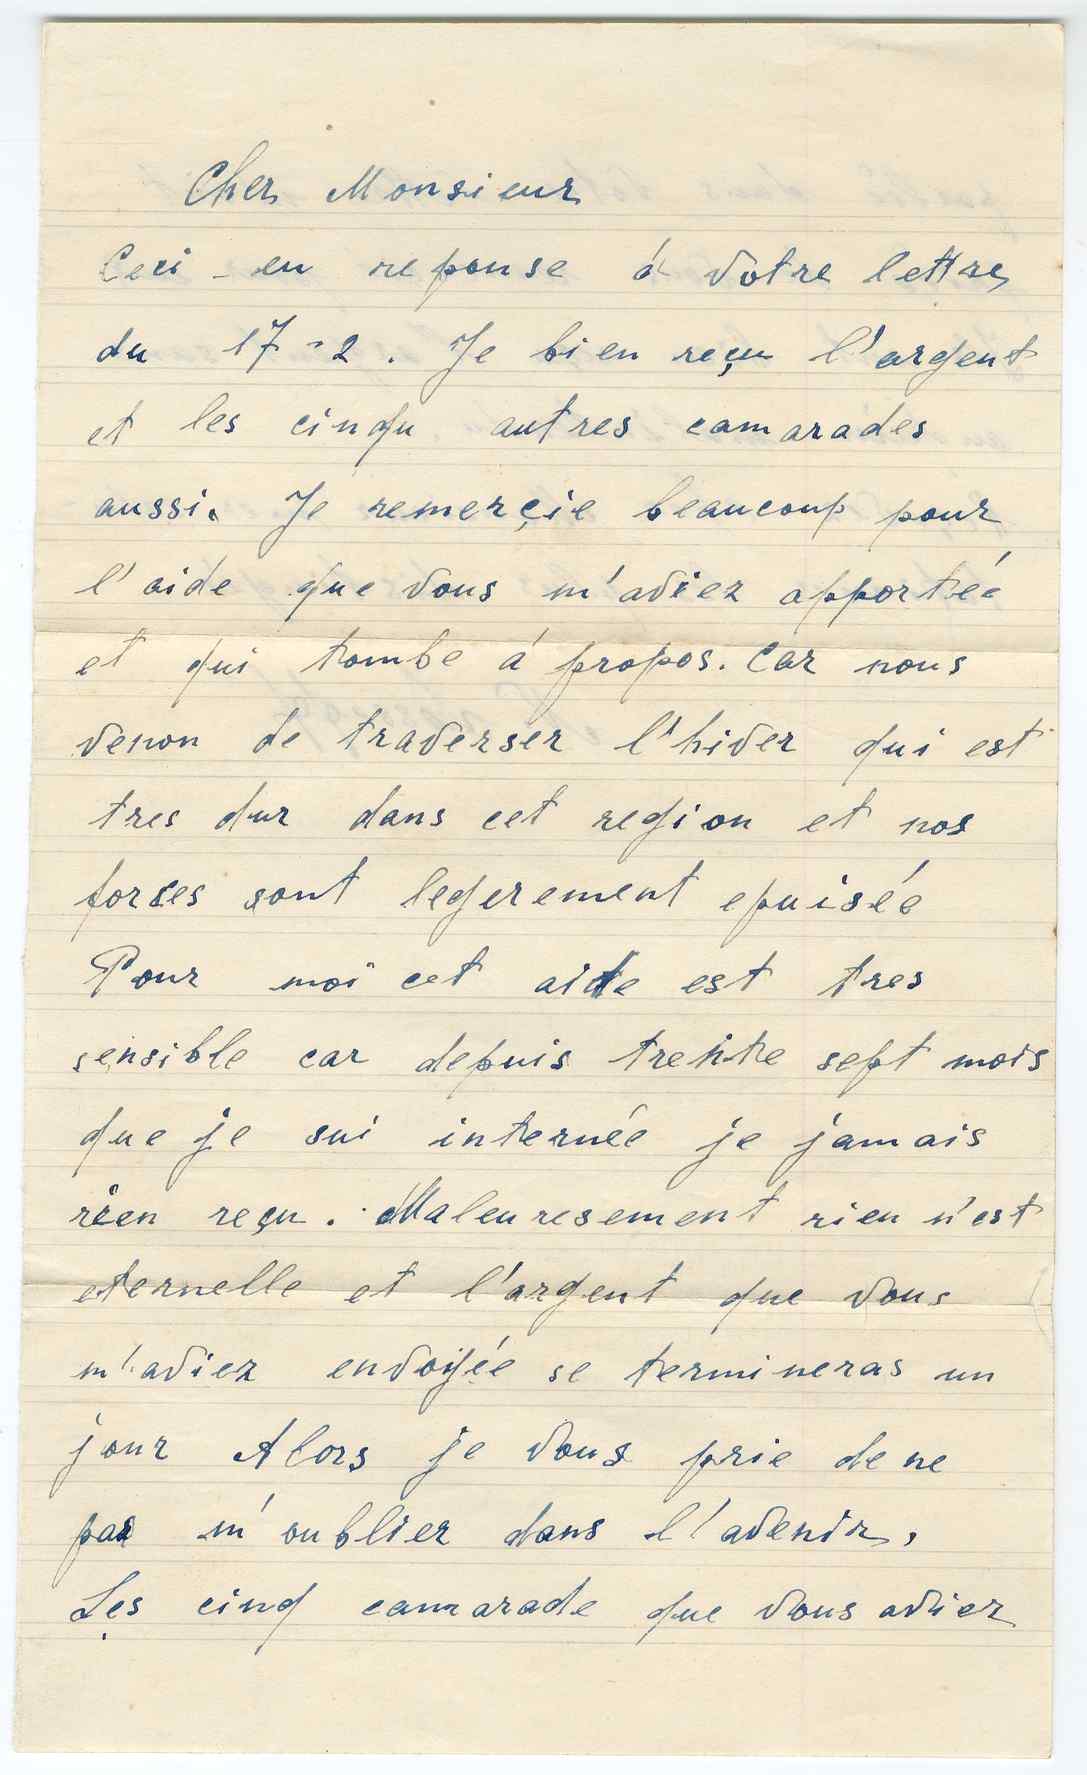 Cher Monsieur
Ceci en reponse à votre lettre
du 17-2. Je bien reçu l'argent
et les cinqu autres camarades
aussi. Je remerçie beaucoup pour
l'aide que vous m'aviez apportée
et qui tombe à propos. Car nous
venon de traverser l'hiver qui est
tres dur dans cet region et nos
forses sont legerement epuisée
Pour moi cet aide est tres
sensible car depuis trente sept mois
que je sui internée je jamais
rien reçu. Maleuresement rien n'est
eternelle et l'argent que vous
m'aviez envoyée se termineras un
jour Alors je vous prie de ne
pas m'oublier dans l'avenir.
Les cinq camarade que vous aviez